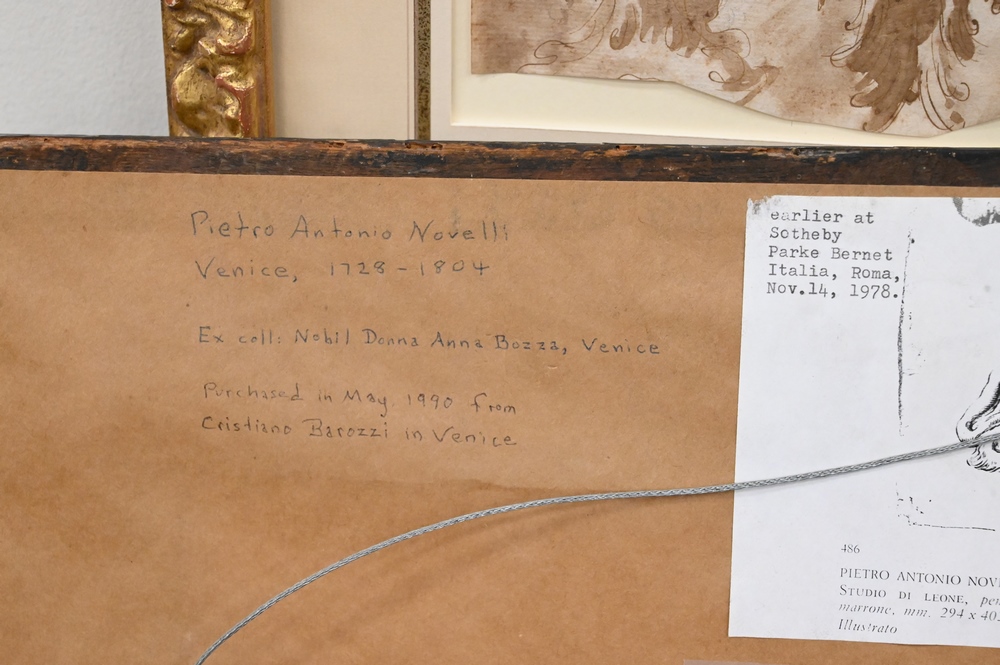 Pietro Antonio Novelli
Venice, 1728-1804
Ex coll: Nobil Donna Anna Bozza, Venice
Purchased in May 1990 from
Cristiano Barozzi in Venice
earlier at
Sotheby
Parke Bernet
Italia, Roma,
Nov.14, 1978.
486
PIETRO ANTONIO NOV
STUDIO DI LEONE, pen
marrone, mm. 294 x 402
Illustrato